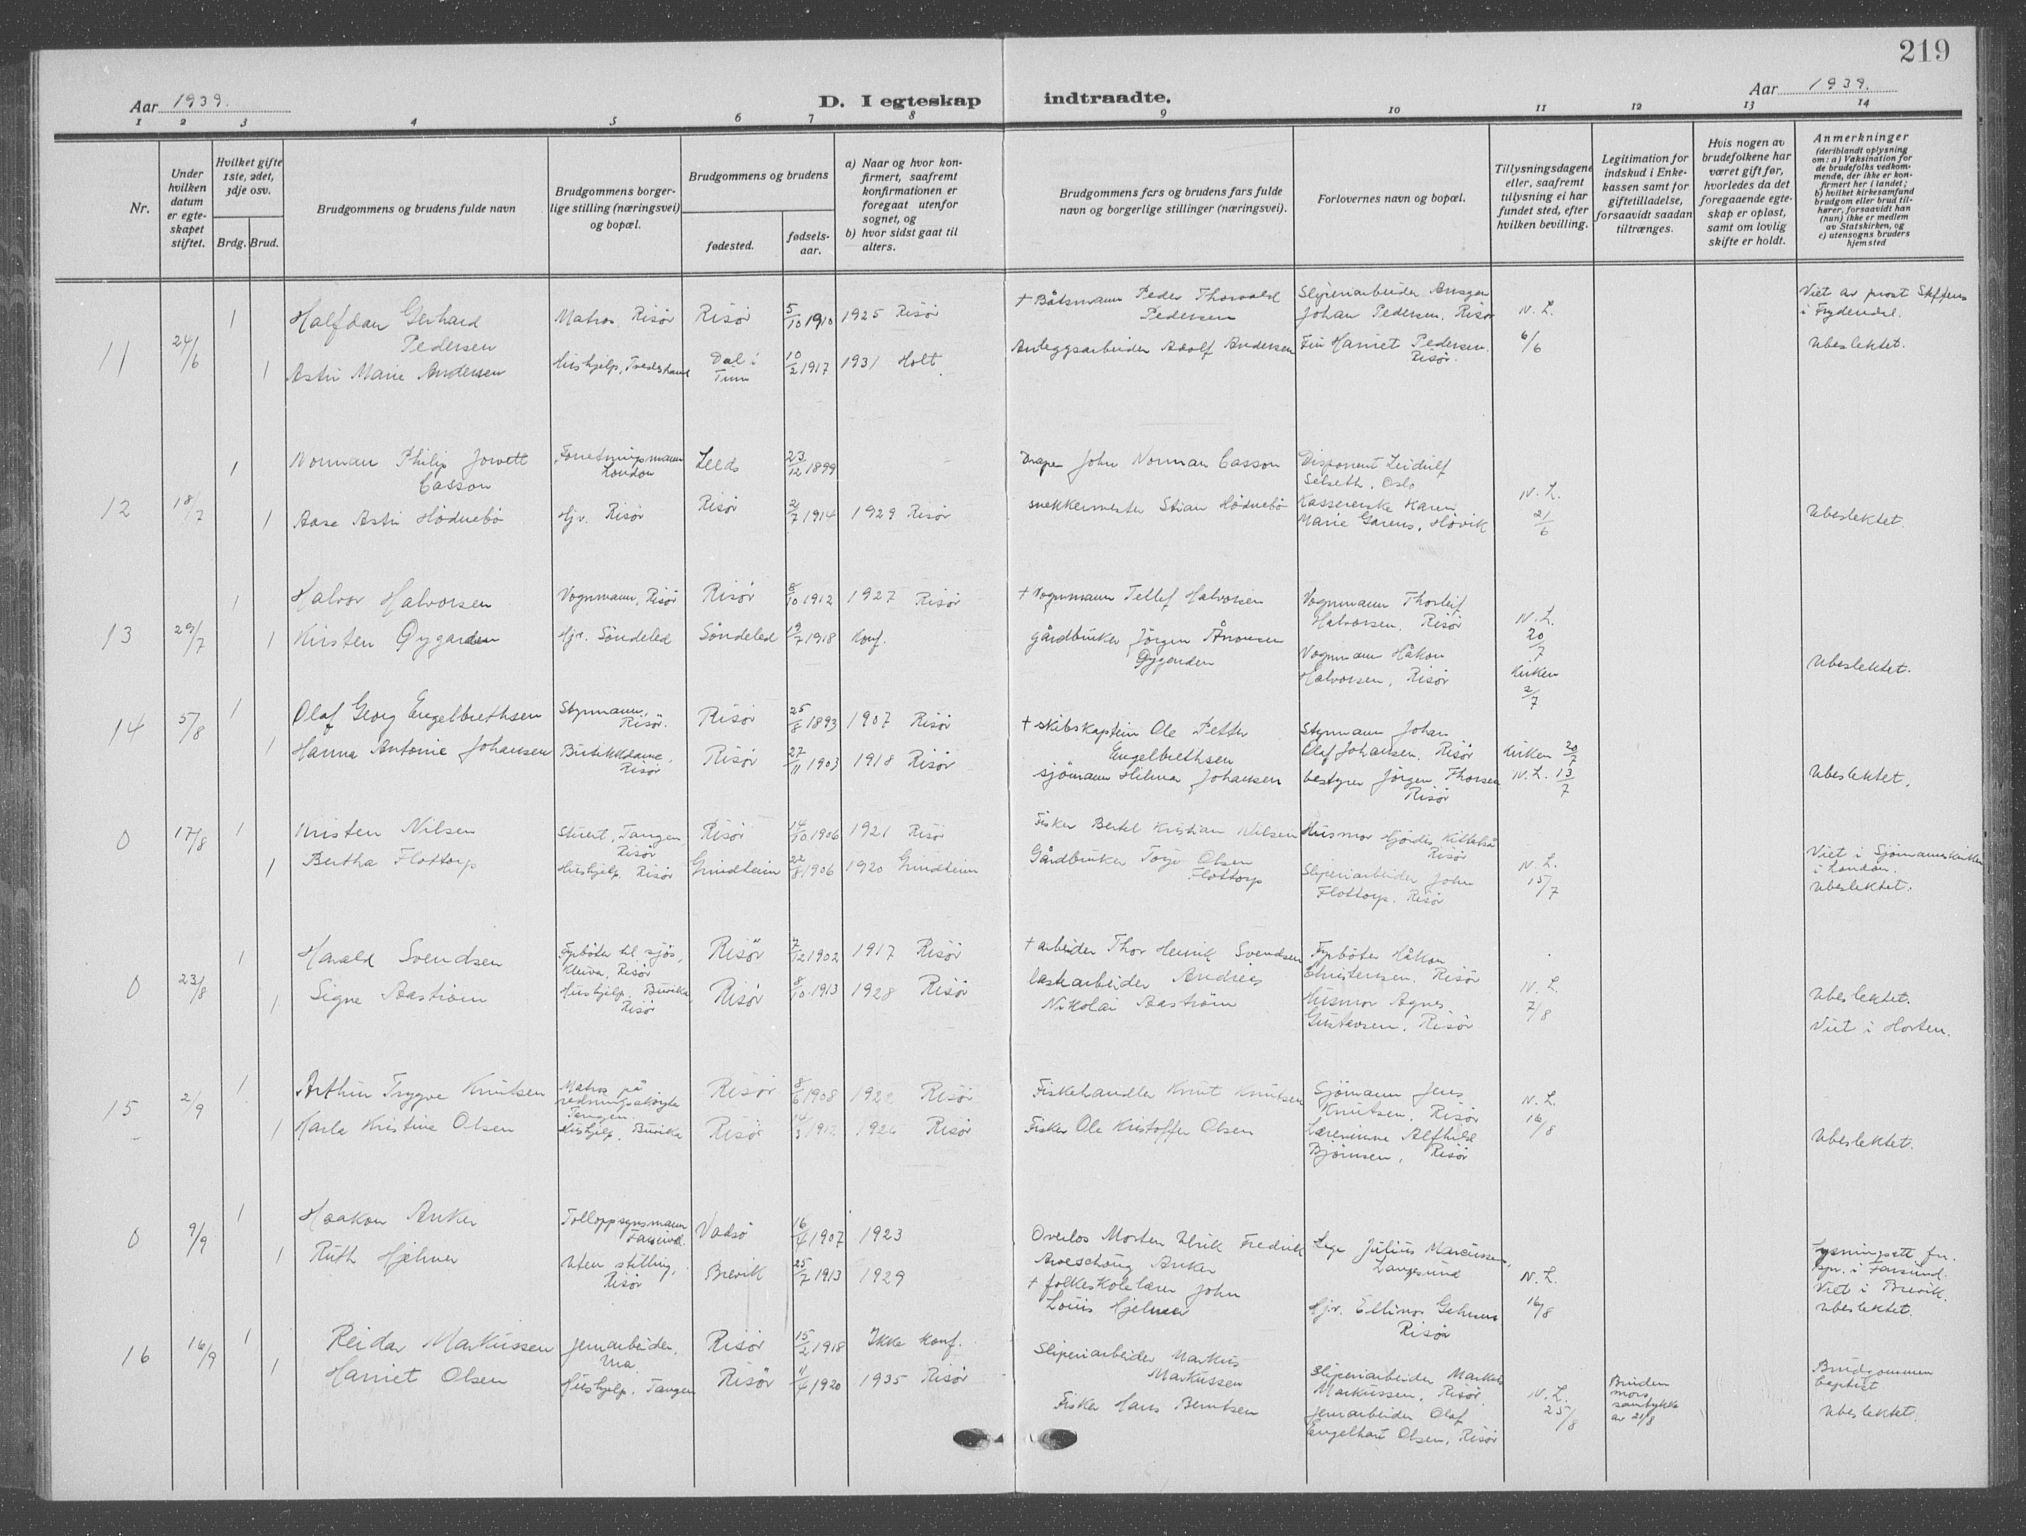 219
Aar 1939.
D. I egteskap indtraadte.
Aar 1939.
1 2 3 4 5 6 7 8 9 10 11 12 13 14
Nr.
Under hvilken datum er egteskapet stiftet.
Hvilket gifte 1ste, 2det, 3dje osv.
Brdg. Brud.
Brudgommens og brudens fulde navn
Brudgommens borgerlige stilling (næringsvei) og bopæl.
Brudgommens og brudens
fødested.
fødselsaar.
a) Naar og hvor konfirmert, saafremt konfirmationen er foregaat utenfor sognet, og
b) hvor sidst gaat til alters.
Brudgommens fars og brudens fars fulde navn og borgerlige stillinger (næringsvei).
Forlovernes navn og bopæl.
Tillysningsdagene eller, saafremt tillysning ei har fundet sted, efter hvilken bevilling.
Legitimation for indskud i Enkekassen samt for giftetilladelse, forsaavidt saadan tiltrænges.
Hvis nogen av brudefolkene har været gift før, hvorledes da det foregaaende egteskap er opløst, samt om lovlig skifte er holdt.
Anmerkninger (deriblandt oplysning om: a) Vaksination for de brudefolks vedkommende, der ikke er konfirmert her i landet; b) hvilket kirkesamfund brudgom eller brud tilhører, forsaavidt han (hun) ikke er medlem av Statskirken, og c) utensogns bruders hjemsted
11 24/6
1 Halfdan Gerhard Pedersen
Matros, Risør Risør 5/10 1910 1925 Risør
+ Båtsmann Peder Thorvald Pedersen
Sliperiarbeider Ansgar Johan Pedersen, Risør
N. L. 6/6
Viet av prost Steffens i Frydendal.
Ubeslektet.
1 Astri Marie Andersen
Hushjelp, Tvedestrand Dal i Tinn 10/2 1917 1931 Holt
Anleggsarbeider Adolf Andersen
Fru Harriet Pedersen. Risør.
12 18/7
1 Norman Philip Jowett Casson
Forretningsmann London Leeds 23/12 1899
Draper John Norman Casson
Disponent Leidulf Selseth, Oslo
N. L. 21/6
1 Aase Astri Hødnebø
Hjv. Risør Risør 2/7 1914 1929 Risør
snekkermester Stian Hødnebø
Kassererske Karen Marie Garens, Høvik
Ubeslektet.
13 29/7
1 Halvor Halvorsen
Vognmann, Risør Risør 8/10 1912 1927 Risør
+ Vognmann Tellef Halvorsen
Vognmann Thorleif Halvorsen. Risør
N. L. 20/7
1 Kirsten Øygarden
Hjv. Søndeled Søndeled 19/7 1918 Konf.
gårdbruker Jørgen Ånonsen Øygarden
Vognmann Håkon Halvorsen, Risør
Kirken 2/7
Ubeslektet.
14 5/8
1 Olaf Georg Engelbrethsen
Styrmann, Risør. Risør 25/8 1893 1907 Risør
+ skibskaptein Ole Petter Engelbrethsen
Styrmann Johan Olaf Johansen. Risør
Kirken 20/7
1 Hanna Antonie Johansen
Butikkdame, Risør Risør 27/11 1903 1918 Risør
sjømann Hilmar Johansen
bestyrer Jørgen Thorsen Risør
N. L. 13/7
Ubeslektet.
0 17/8
1 Kristen Nilsen
Stuert, Tangen, Risør Risør 14/10 1906 1921 Risør
Fisker Bertel Kristian Nilsen
Husmor Hjørdis Kittelsen Risør
N. L. 15/7
Viet i Sjømannskirken i London.
Ubeslektet.
1 Bertha Flottorp
Hushjelp Risør Grindheim 22/8 1906 1920 Grindheim
Gårdbruker Torje Olsen Flottorp
Sliperiarbeider John Flottorp. Risør
0 23/8
1 Harald Svendsen
Fyrbøter til sjøs, Kleiva, Risør Risør 7/12 1902 1917 Risør
+ arbeider Thor Henrik Svendsen
Fyrbøter Håkon Christensen. Risør
N. L. 7/8
1 Signe Aastrøm
Hushjelp, Buvika, Risør Risør 8/10 1913 1928 Risør
lastarbeider Andreas Nikolai Aastrøm
Husmor Agnes Gustavsen. Risør
Ubeslektet.
Viet i Horten.
15 2/9
1 Arthur Trygve Knutsen
Matros på redningsskøyte Tangen. Risør 8/6 1908 Risør
Fiskehandler Knut Knutsen
Sjømann Jens Knutsen. Risør
N. L. 16/8
1 Karla Kristine Olsen
Hushjelp. Buvika Risør Risør
Fisker Ole Kristoffer Olsen
Lærerinne Alfhild Bjørnsen, Risør
Ubeslektet.
0 9/9
1 Haakon Anker
Tolloppsynsmann Farsund. Vadsø 16/4 1907 1923
Overlos Morten Ulrik Fredrik Aveschoug Anker
Lege Julius Marcussen, Langesund
N. L. 16/8
Lysningsatt. fra Spr. i Farsund.
Viet i Brevik.
Ubeslektet.
1 Ruth Hjelmer
Uten stilling, Risør Brevik 25/7 1913 1929
+ folkeskolelærer John Louis Hjelmer
Hjv. Ellinor Risør
16 16/9
1 Reidar Markussen
Jernarbeider, Ura Risør 15/2 1918 Ikke konf.
Sliperiarbeider Markus Markussen
Sliperiarbeider Markus Markussen, Risør
N. L. 25/8
Bruden mors samtykke av 21/8
Brudgommen baptist
Ubeslektet.
1 Harriet Olsen
Hushjelp, Tangen Risør 11/4 1920 1935 Risør
Fisker Hans Berntsen
Jernarbeider Olaf Engelhart Olsen, Risør